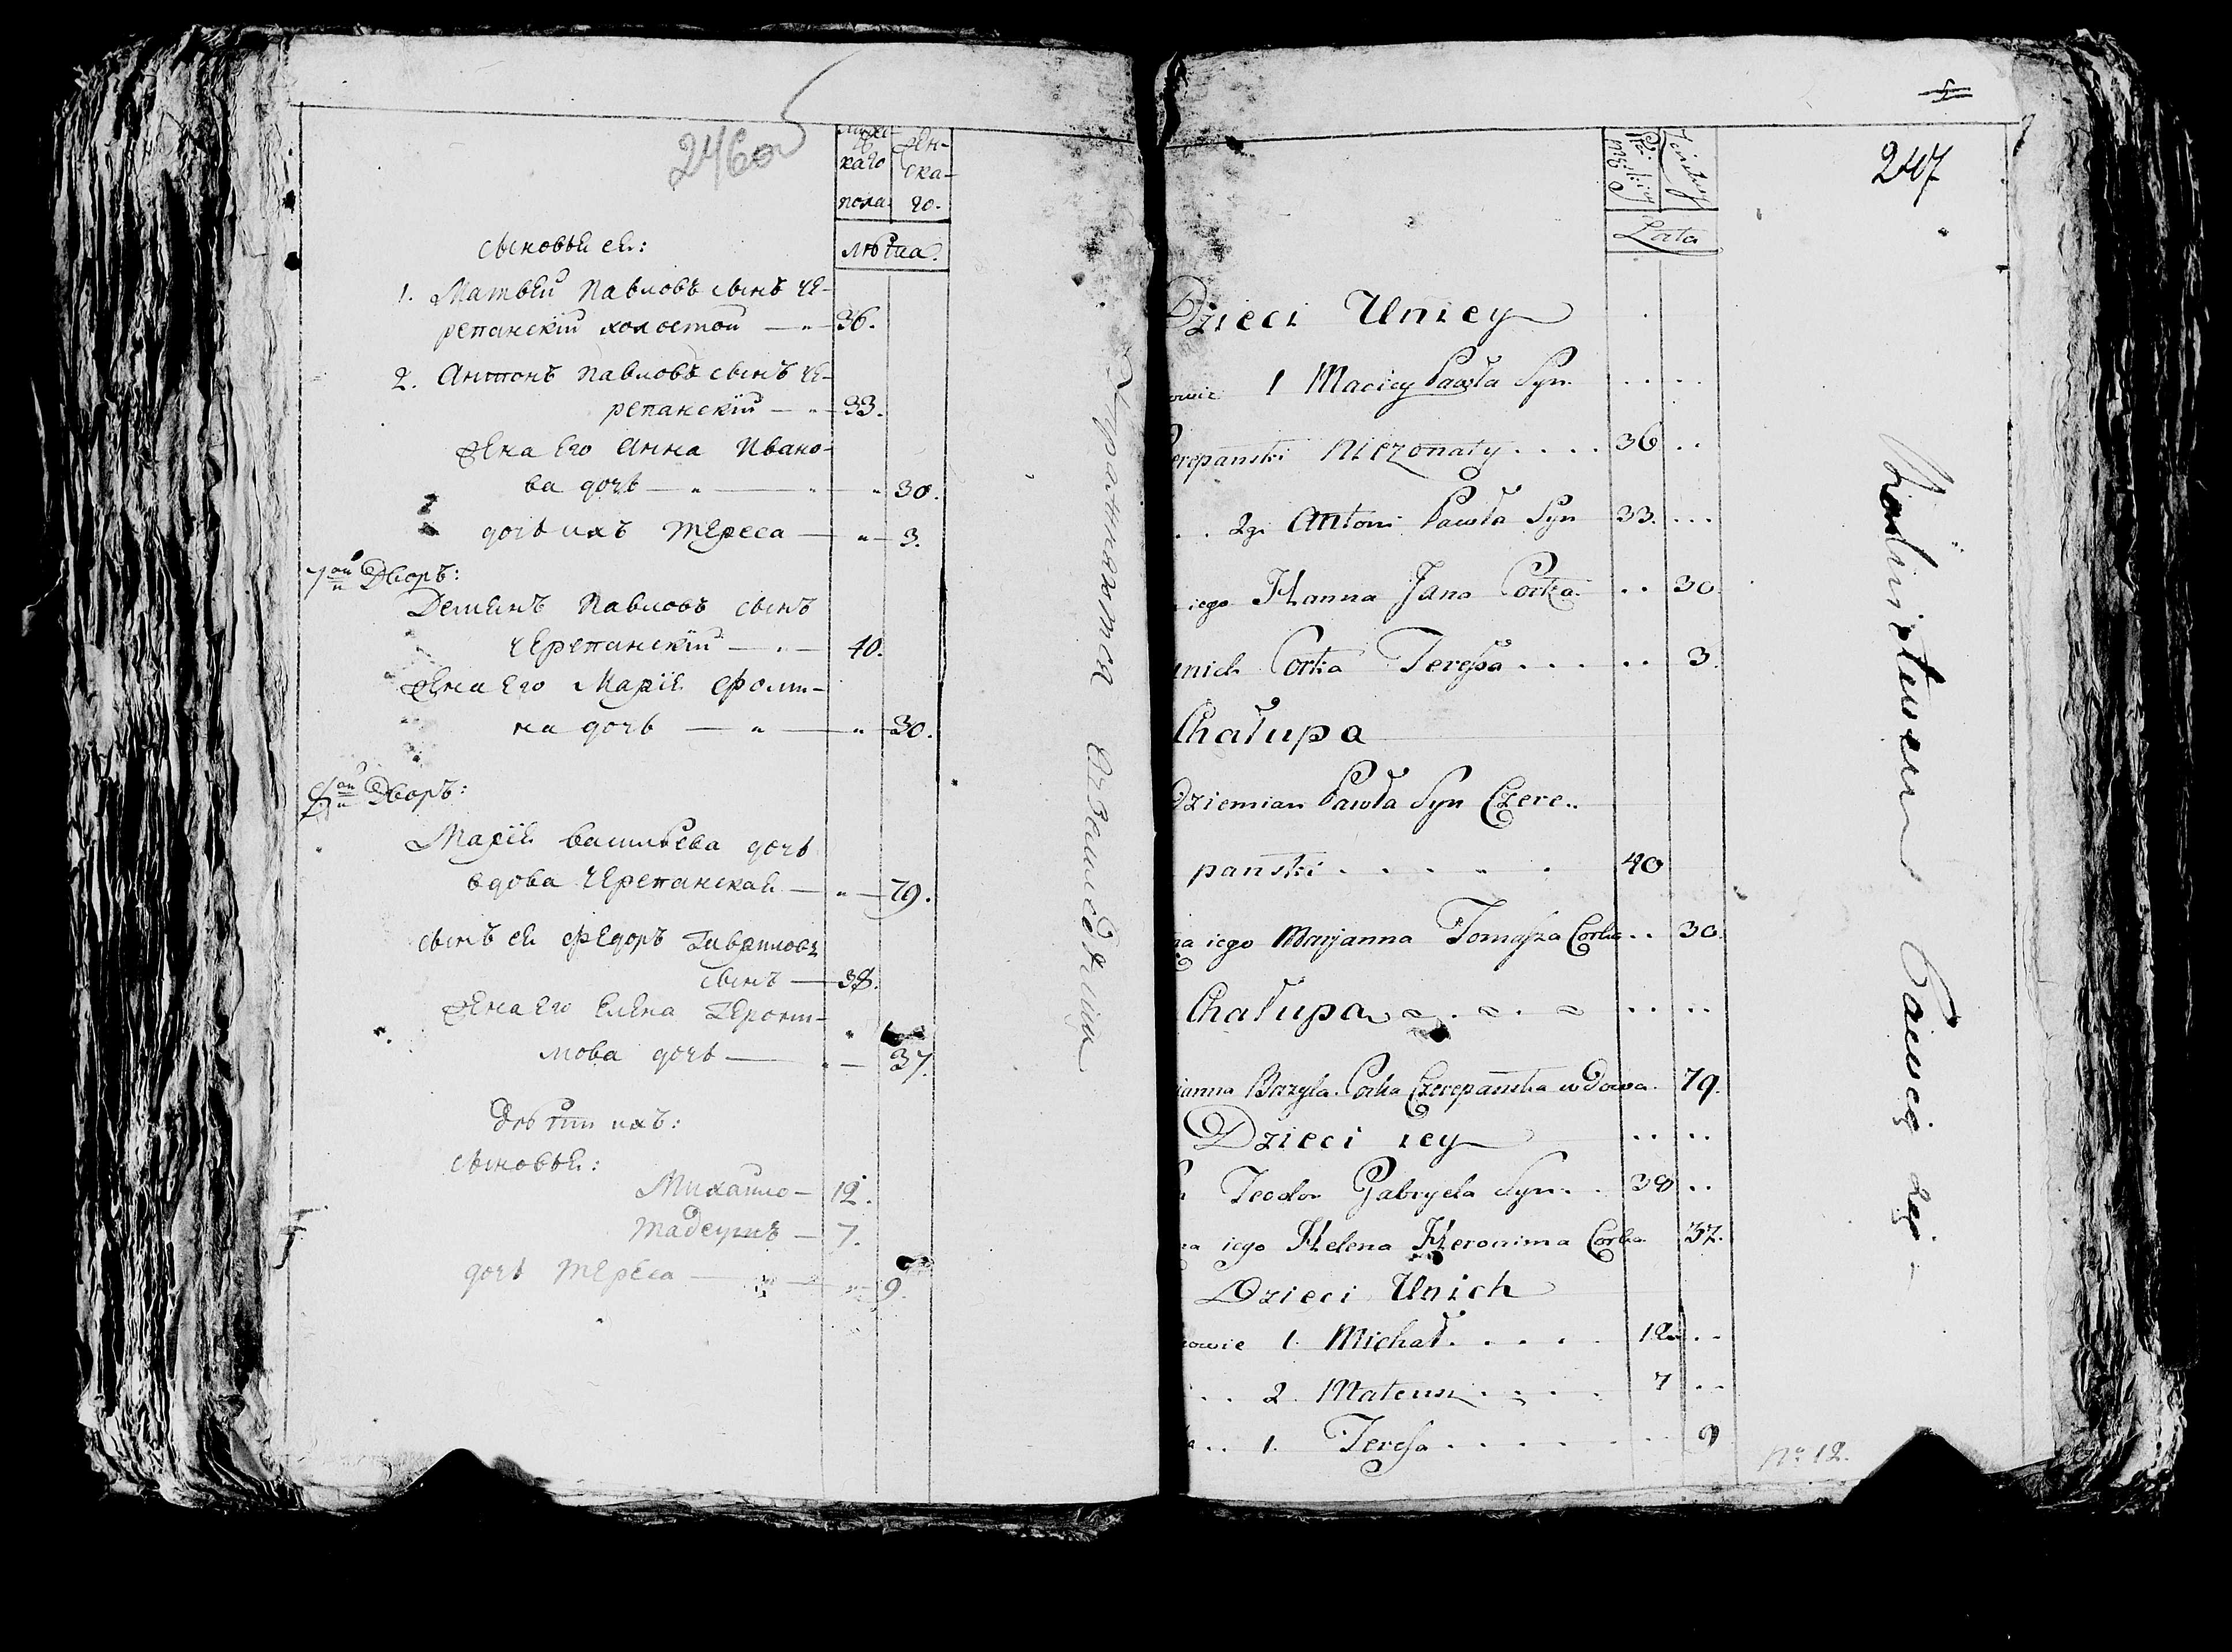 246об
мужескаго пола
женскаго.
лѣта.
сыновья ея:
1. Матвѣй Павловъ сынъ че-
репанскій холостой — „ — 36.
2. Антонъ Павловъ сынъ че-
репанскій — „ — 33.
жена его Анна Ивано-
ва дочь — „ — „ — „ 30.
дочь ихъ Тереса — „ — 3.
7ой Дворъ:
Демьянъ Павловъ сынъ
Черепанскій — „ — 40.
жена его Марія Фоми-
на дочь — „ — „ — 30.
8ой Дворъ:
Марія Васильева дочь
вдова Черепанская — „ — 79.
сынъ ея Федоръ Гавриловъ
сынъ — 38.
жена его Елена Герони-
мова дочь — „ — 37.
дѣти ихъ:
сыновья:
Михайло — 12.
Тадеушъ — 7.
дочь Тереса — „ — 9.
247
Lata
Dzieci Uniey
owie 1 Maciey Pawła Syn . . . .
erepanski Niezonaty . . . . 36 . .
. . 2gi Antoni Pawła Syn 33. . . .
iego Hanna Jana Corka . . 30
unich Corka Teressa . . . . . 3.
Chałupa
Dziemian Pawła Syn Czere..
panski . . . . . 40
na iego Marjanna Tomasza Corka . . 30.
Chałupa . . . .
ianna Bazyla Corka Czerepanska wdowa. 79.
Dzieci iey . . . .
Teodor Gabryela Syn . . 38 . .
na iego Helena Heronima Corka 37.
Dzieci Unich
nowie 1. Michał . . . . . 12 . .
. . 2. Mateusz . . . . 7 . .
a . . 1. Teressa . . . . . . 9
No 12.